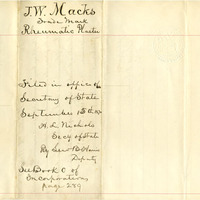 J.W. Macks
Trade Mark
Rheumatic Plaster
Filed in office of
Secretary of State
September 15th
H. L. Nichols
Secy of State
By
Deputy
See Book C of
Incorporations
page 279